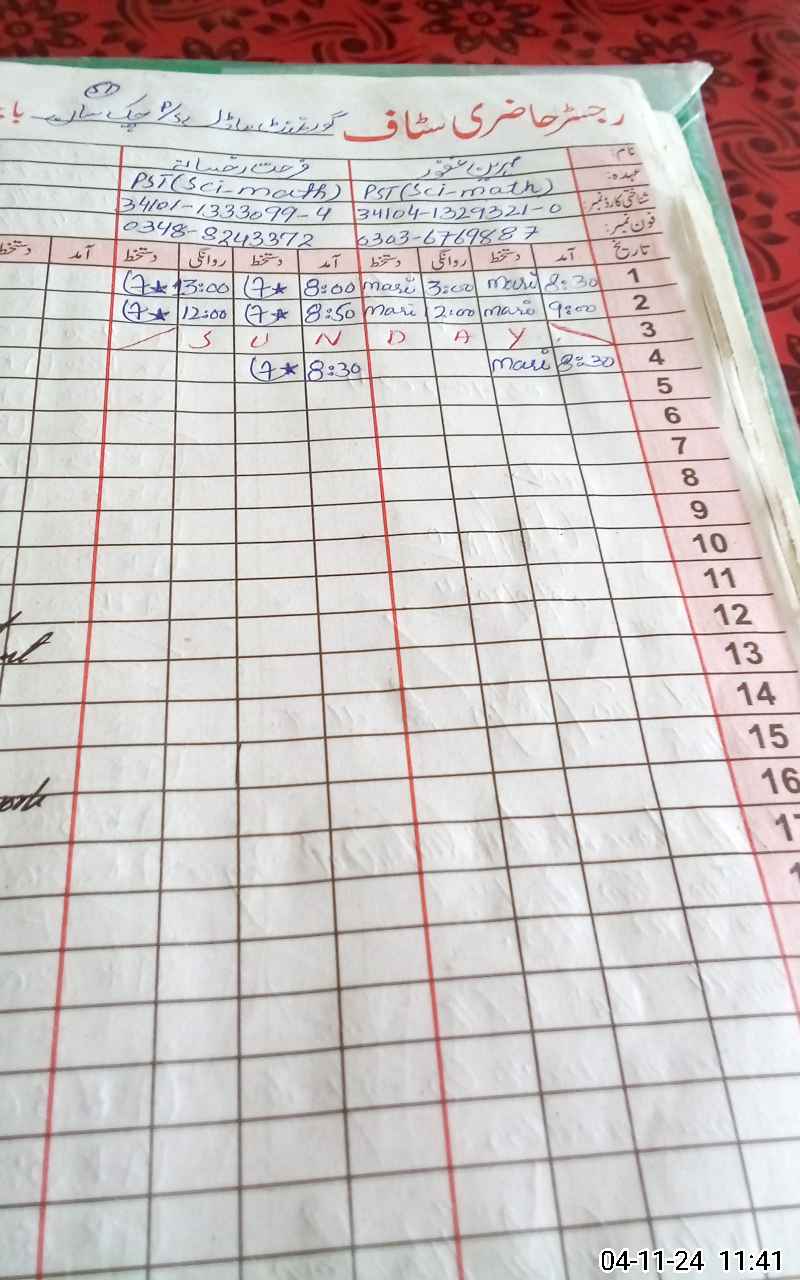 رجسٹر حاضری سٹاف گورنمنٹ ماڈل P/S چک
نام:
عہدہ: PST (Sci-math) PST (Sci-math)
شناختی کارڈ نمبر: 34104-1329321-0 34101-1333099-4
فون نمبر: 0303-6769887 0348-8243372
تاریخ آمد دستخط روانگی دستخط آمد دستخط روانگی دستخط آمد دستخط
1 8:30 mari 3:00 mari 8:00 13:00
2 9:00 mari 12:00 mari 8:50 12:00
3 S U N D A Y
4 8:30 mari 8:30
5
6
7
8
9
10
11
12
13
14
15
16
04-11-24 11:41